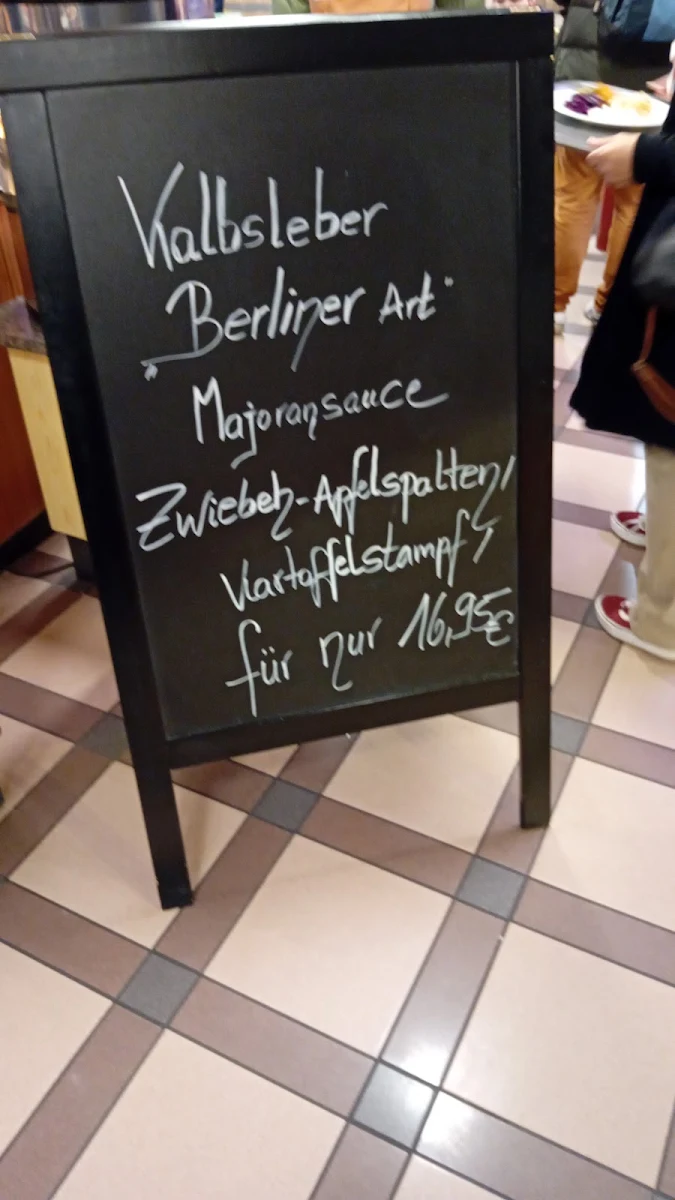 Kalbsleber
„Berliner Art"
Majoransauce
Zwiebeln-Apfelspalten,
Kartoffelstampf,
für nur 16,95€